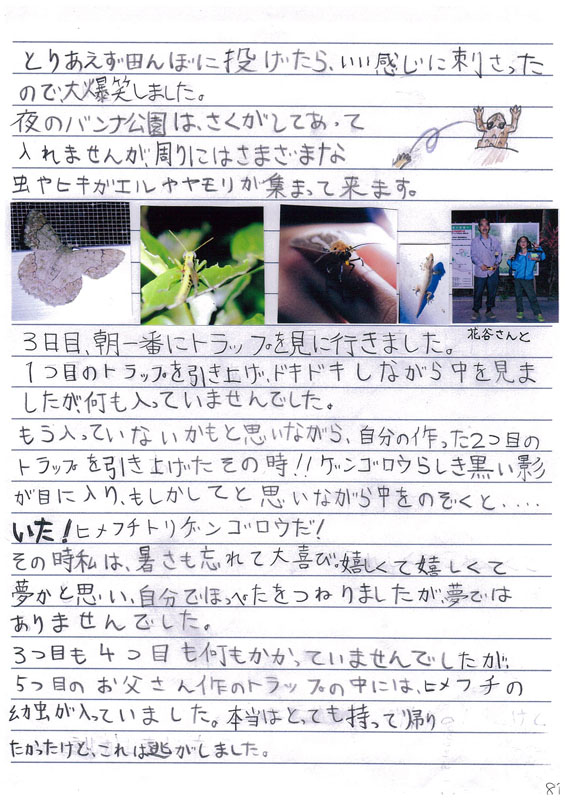 とりあえず田んぼに投げたら、いい感じに刺さった
ので、大爆笑しました。
夜のバンナ公園は、さくがしてあって
入れませんが、周りにはさまざまな
虫やヒキガエルやヤモリが集まって来ます。
花谷さんと
3日目、朝一番にトラップを見に行きました。
1つ目のトラップを引き上げ、ドキドキしながら中を見ま
したが、何も入っていませんでした。
もう入っていないかもと思いながら、自分の作った2つ目の
トラップを引き上げたその時!!ゲンゴロウらしき黒い影
が目に入り、もしかしてと思いながら中をのぞくと、....
いた!ヒメフチトリゲンゴロウだ!
その時私は、暑さも忘れて大喜び。嬉しくて嬉しくて
夢かと思い、自分でほっぺたをつねりましたが、夢では
ありませんでした。
3つ目も4つ目も何もかかっていませんでしたが、
5つ目のお父さん作のトラップの中には、ヒメフチの
幼虫が入っていました。本当はとっても持って帰り
たかったけど、これは逃がしました。